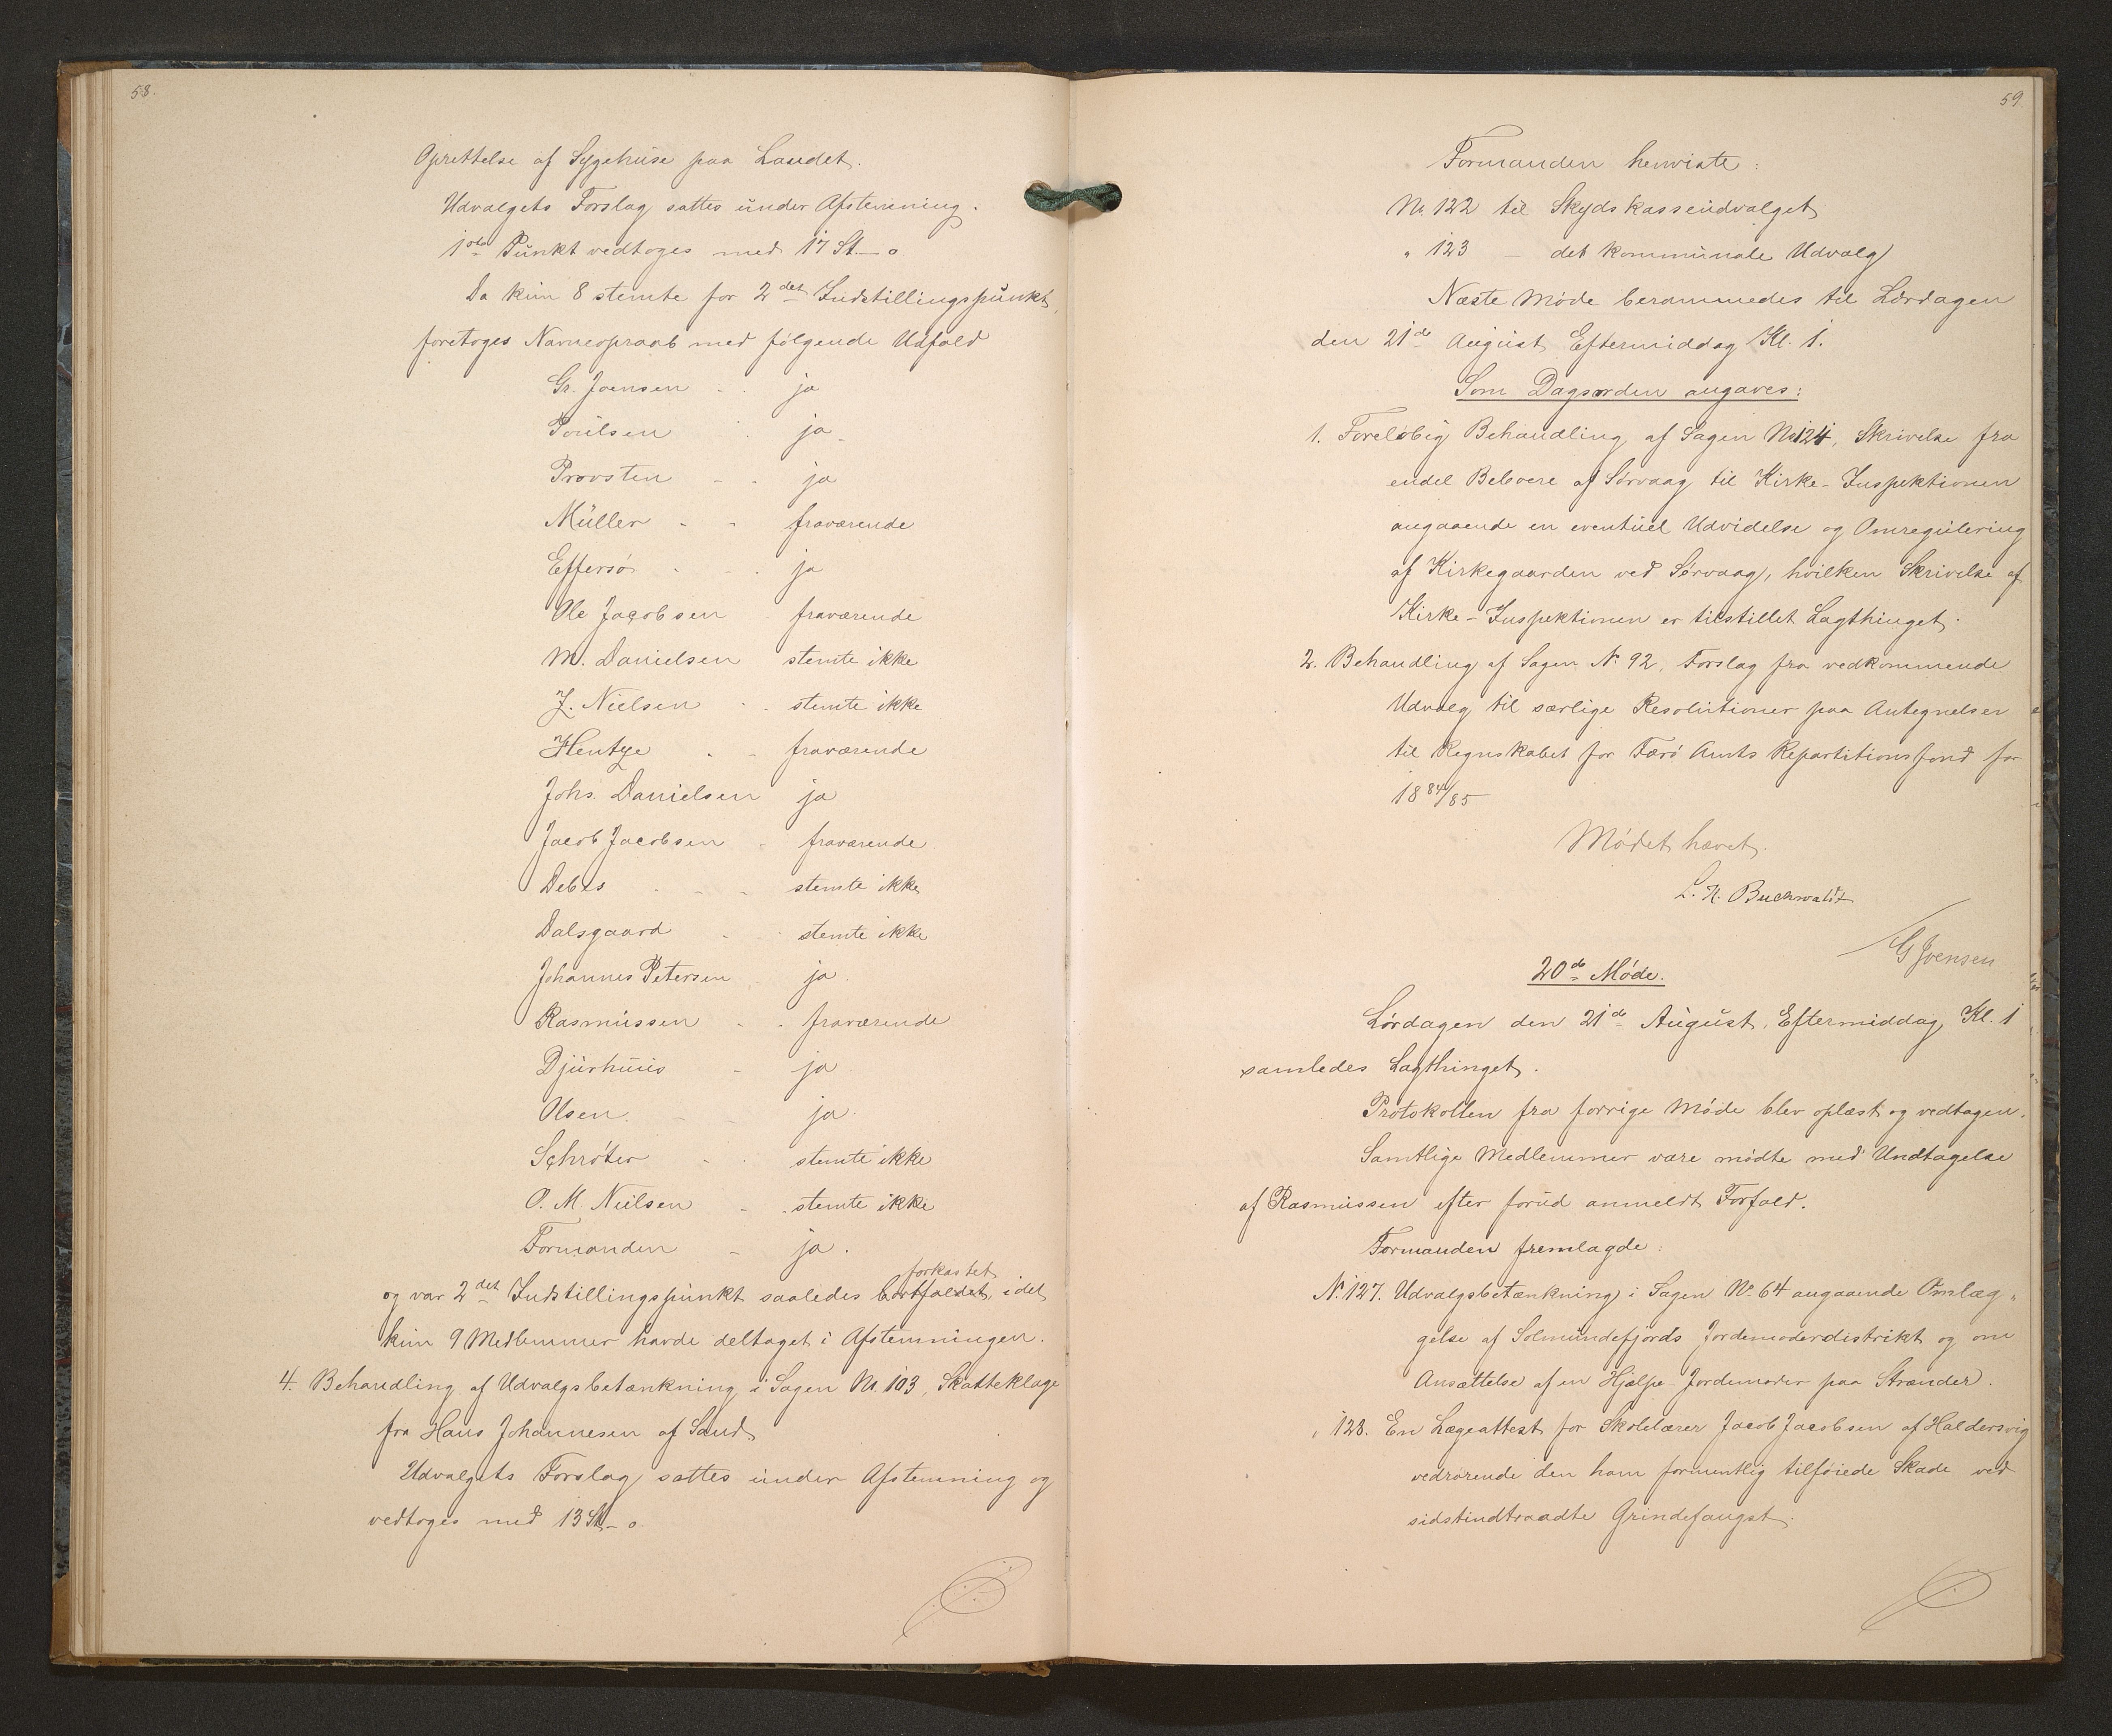 58.
Oprettelse af Sygehuse paa Landet.
Udvalgets Forslag sattes under Afstemning.
1ste Punkt vedtoges med 17 St. – 0.
Da kun 8 stemte for 2det Indstillingspunkt,
foretoges Navneopraab med følgende Udfald
Gr. Joensen - - ja
Poulsen - ja
Provsten - - ja
Müller - - fraværende
Effersø - - ja
Ole Jacobsen - fraværende
M. Danielsen stemte ikke
J. Nielsen - - stemte ikke
Hentze - - fraværende
Johs. Danielsen ja
Jacob Jacobsen - fraværende
Debes - - - stemte ikke
Dalsgaard - - stemte ikke
Johannes Petersen ja
Rasmussen - - fraværende
Djurhuus - ja
Olsen - - ja
Schrøter - - stemte ikke
O. M Nielsen - - stemte ikke
Formanden - ja.
forkastet
og var 2det Indstillingspunkt saaledes bortfaldet, idet
kun 9 Medlemmer havde deltaget i Afstemningen.
4. Behandling af Udvalgsbetænkning i Sagen Nr. 103, Skatteklage
fra Hans Johannesen af Sand.
Udvalgets Forslag sattes under Afstemning og
vedtoges med 13 St – 0.
59.
Formanden henviste:
Nr. 122 til Skydskasseudvalget
" 123 – det kommunale Udvalg
Næste Møde berammedes til Lørdagen
den 21de August Eftermiddag Kl. 1.
Som Dagsorden angaves:
1. Foreløbig Behandling af Sagen No 124, Skrivelse fra
endel Beboere af Sørvaag til Kirke-Inspektionen
angaaende en eventuel Udvidelse og Omregulering
af Kirkegaarden ved Sørvaag, hvilken Skrivelse af
Kirke-Inspektionen er tilstillet Lagthinget.
2. Behandling af Sagen Nr. 92, Forslag fra vedkommende
Udvalg til særlige Resolutioner paa Antegnelser
til Regnskabet for Færø Amts Repartitionsfond for
1884/85
Mødet hævet.
L. N. Buchwaldt
G Joensen
20de Møde.
Lørdagen den 21de August, Eftermiddag Kl. 1
samledes Lagthinget.
Protokollen fra forrige Møde blev oplæst og vedtagen.
Samtlige Medlemmer vare mødte med Undtagelse
af Rasmussen efter forud anmeldt Forfald.
Formanden fremlagde:
Nr. 127. Udvalgsbetænkning i Sagen No. 64 angaaende Omlæg"
gelse af Solmundefjords Jordemoderdistrikt og om
Ansættelse af en Hjælpe-Jordemoder paa Strænder.
" 128. En Lægeattest for Skolelærer Jacob Jacobsen af Haldersvig
vedrørende den ham formentlig tilføiede Skade ved
sidstindtraadte Grindefangst.